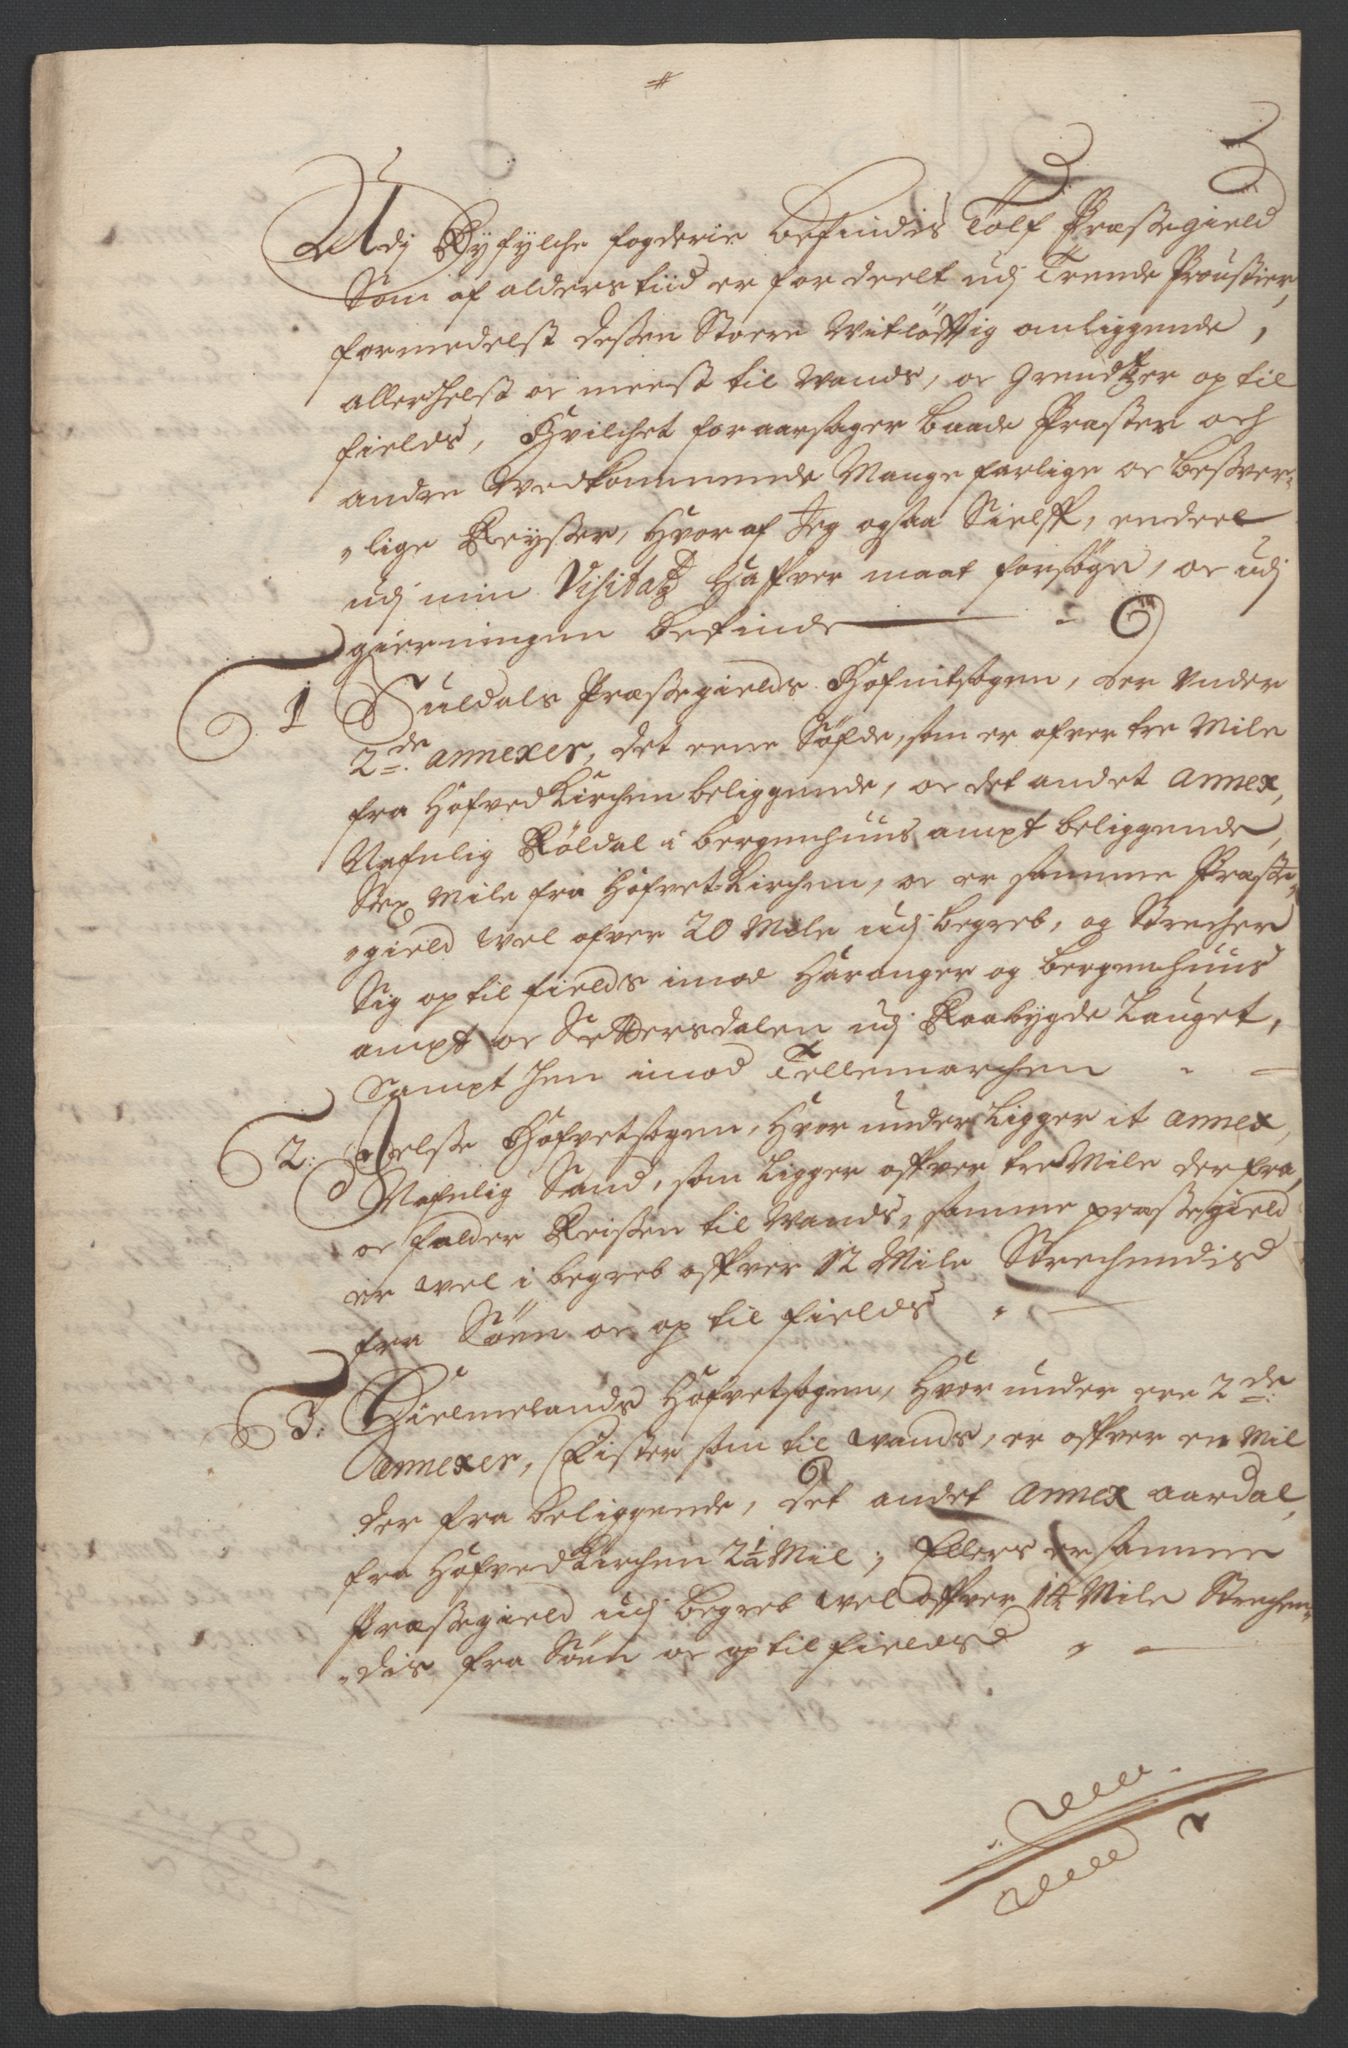 Udj Ryfylche fogderie befindis Tolf Præstegield
Som af alders tiid er fordeelt udj Trende Proustier,
formedelst dessen Store Witløfftig anliggende,
allerhelst oc meest til Vands, oc Grendtzer op til
fields, Hvilchet foraarsager baade Præster och
andre Vedkommende Mange farlige oc besver„
„lige Reyser, Hvor af Jeg ogsaa Sielff, endeel
udj min Visitatz Haffver maat forsøge, oc udj
gierningen befinde
1 Suldals Præstegields Hofvitsogen, der Under
2de annexer, det eene Søfde, som er ofver tre Mile
fra Hofved Kirchen beliggende, oc det andet Annex,
Nafnlig Røldal i bergenhuus ampt beliggende,
Sex Mile fra Hofvet Kirchen, oc er samme Præste„
„gield vel ofver 20 Mile udj begreb, og Strecher
Sig op til fields imod Haranger og bergenhuus
ampt oc Settersdalen udj Raabygde Lauget,
Sampt hen imod Tellemarchen
2: Jelse Hofvetsogen, Hvor under Ligger it annex,
Nafnlig Sand, som Ligger offver tre Mile derfra,
oc falder Reisen til Vands, samme præstegield
er vel i begreb offver 12 Mile Strechendis
fra Søen oc op til fields
3: Hielmelands Hofvetsogen, Hvor under ere 2de
Annexer, Fister som til vands, er offver en Mil
der fra beliggende, det andet Annex aardal,
fra Hofved Kirchen 2½ Mil; Ellers er samme
Præstegield udj begreb vel offver 14 Mile Strechen„
„dis fra Søen oc op til fields